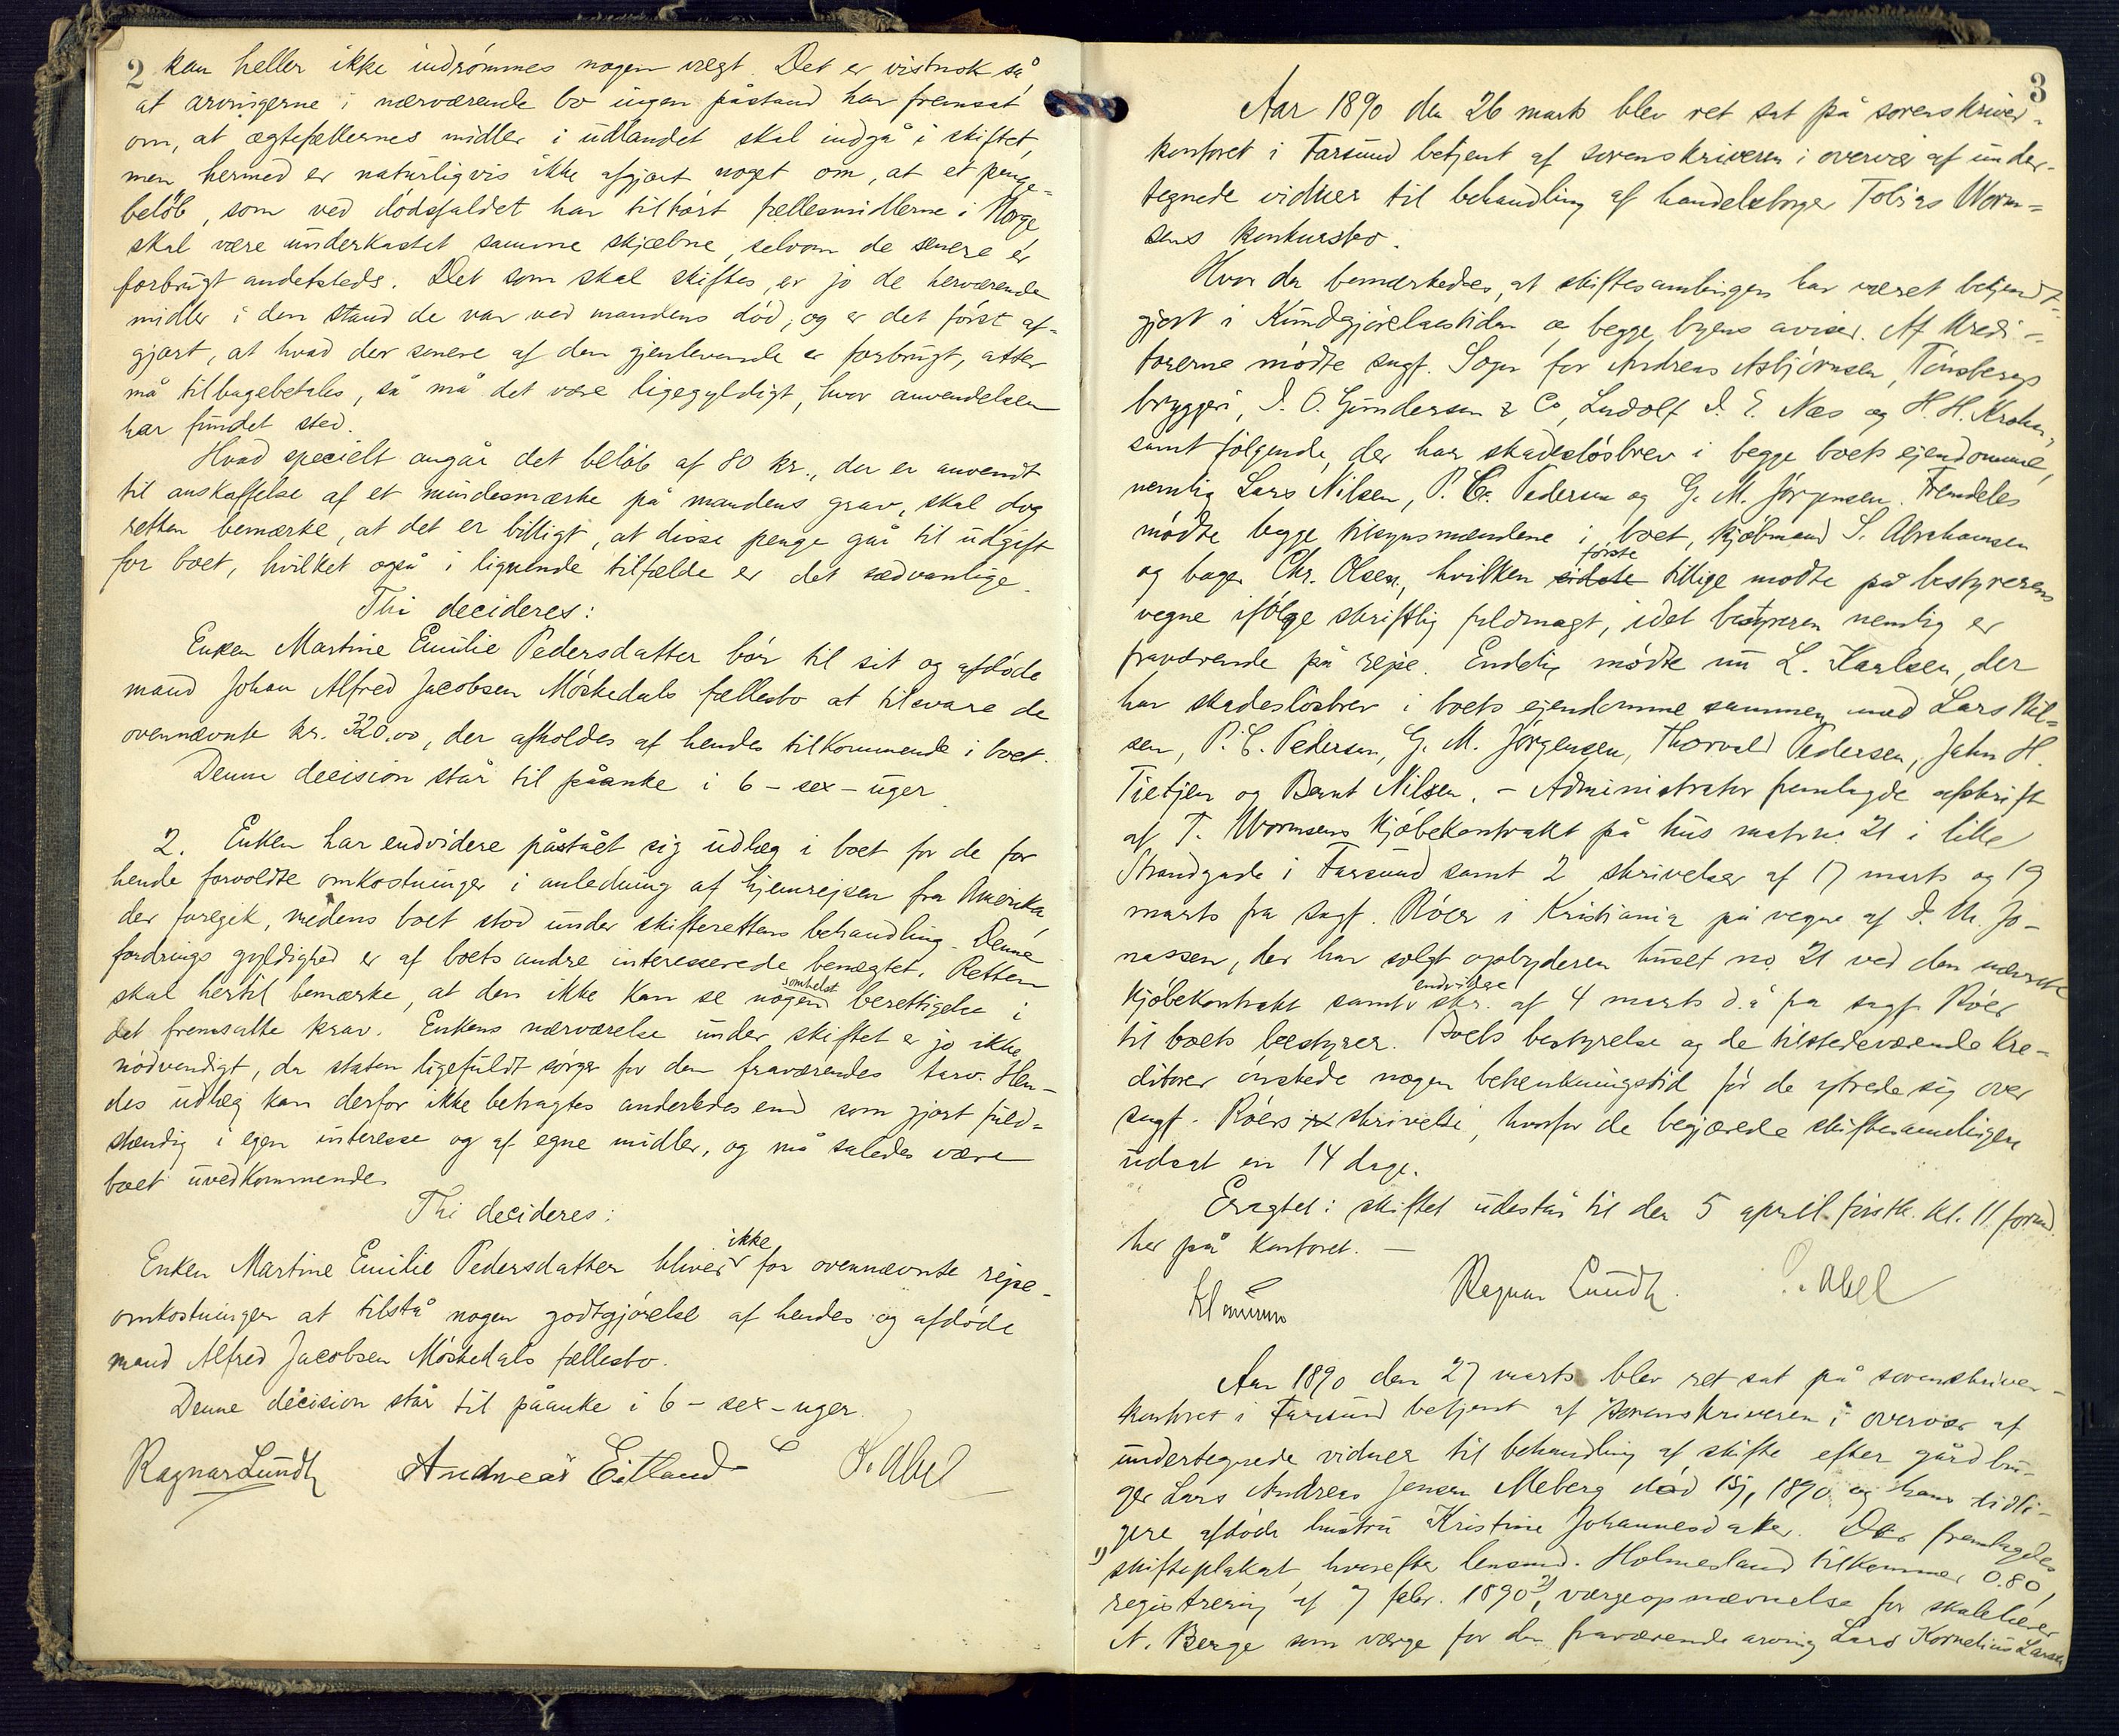 2
kan heller ikke indrömmes nogen vægt. Det er vistnok så
at arvingerne i nærværende bo ingen påstand har fremsat
om, at ægtefællernes midler i udlandet skal indgå i skiftet,
men hermed er naturligvis ikke afgjort noget om, at et penge-
belöb, som ved dödsfaldet har tilhört fællesmidlerne i Norge
skal være underkastet samme skjæbne, selvom de senere er
forbrugt andetsteds. Det som skal skiftes, er jo de herværende
midler i den stand de var ved mandens död, og er det först af-
gjort, at hvad der senere af den gjenlevende er forbrugt, atter
må tilbagebetales, så må det være ligegyldigt, hvor anvendelsen
har fundet sted.
Hvad specielt angår det belöb af 80 kr., der er anvendt
til anskaffelse af et mindesmærke på mandens grav, skal dog
retten bemærke, at det er billigt, at disse penge går til udgift
for boet, hvilket også i lignende tilfælde er det sædvanlige.
Thi decideres:
Enken Martine Emilie Pedersdatter bör til sit og afdöde
mand Johan Alfred Jacobsen Möskedals fællesbo at tilsvare de
ovennævnte kr. 320,00, der afholdes af hendes tilkommende i boet.
Denne decision står til påanke i 6 - sex - uger.
2. Enken har endvidere påstået sig udlæg i boet for de for
hende forvoldte omkostninger i anledning af hjemrejsen fra Amerika,
der foregik, medens boet stod under skifterettens behandling. Denne
fordrings gyldighed er af boets andre interesserede benægtet. Retten
skal hertil bemærke, at den ikke kan se nogen somhelst berettigelse i
det fremsatte krav. Enkens nærværelse under skiftet er jo ikke
nödvendigt, da staten ligefuldt sörger for den fraværendes tarv. Hen-
des udlæg kan derfor ikke betragtes anderledes end som gjort fuld-
stændig i egen interesse og af egne midler, og må således være
boet uvedkommende.
Thi decideres:
Enken Martine Emilie Pedersdatter bliver ikke for ovennævnte rejse-
omkostninger at tilstå nogen godtgjörelse af hendes og afdöde
mand Alfred Jacobsen Möskedals fællesbo.
Denne decision står til påanke i 6 - sex - uger.
Ragnar Lundh Andreas Eitland Abel
3
Aar 1890 den 26 marts blev ret sat på sorenskriver-
kontoret i Farsund betjent af sorenskriveren i overvær af under-
tegnede vidner til behandling af handelsborger Tobias Worm-
sens konkursbo.
Hvor da bemærkedes, at skiftesamlingen har været bekjendt-
gjort i Kundgjörelsestidende og begge byens aviser. Af kredi-
torerne mödte sagf. for Andreas Asbjörnsen, Tönsbergs
bryggeri, J. O. Gundersen & Co, Ludolf J. E. Næs og H. H. Krohn,
samt fölgende, der har skadeslösbrev i begge boets ejendomme,
nemlig Lars Nilsen, P. C. Pedersen og G. M. Jörgensen. Fremdeles
mödte begge tilsynsmændene i boet, kjöbmand S. Abrahamsen
og bager Chr. Olsen, hvilken sidste förste tillige mödte på bestyrerens
vegne ifölge skriftlig fuldmagt, idet bestyreren nemlig er
fraværende på rejse. Endelig mödte nu L. Karlsen, der
har skadeslösbrev i boets ejendomme sammen med Lars Nil-
sen, P. C. Pedersen, G. M. Jörgensen, Thorvald Pedersen, John H.
Tietjen og Bernt Nilsen. - Administrator fremlagde afskrift
af T. Wormsens kjöbekontrakt på hus matr.no. 21 i lille
Strandgade i Farsund samt 2 skrivelser af 17 marts og 19
marts fra sagf. Röer i Kristiania på vegne af J. M. Jo-
nassen, der har solgt opbyderen huset no. 21 ved den nævnte
kjöbekontrakt samt endvidere skr. af 4 marts d.å fra sagf. Röer
til boets bestyrer. Boets bestyrelse og de tilstedeværende kre-
ditorer önskede nogen betænkningstid för de ytrede sig over
sagf. Röers skrivelse, hvorfor de begjærede skiftesamlingen
udsat en 14 dage.
Eragtet: skiftet udestår til den 5 april förstk. kl. 11 formd.
her på kontoret. -
Ragnar Lundh. Abel
Aar 1890 den 27 marts blev ret sat på sorenskriver-
kontoret i Farsund betjent af sorenskriveren i overvær af
undertegnede vidner til behandling af skifte efter gårdbru-
ger Lars Andreas Jensen Meberg död 1890 og hans tidli-
gere afdöde hustru Kristine Johannesdatter. Der fremlagdes
1) skifteplakat, hvorefter lensmd. Holmesland tilkommer 0.80,
registrering af 7 febr. 1890, 2) værgeopnævnelse for skolelærer
N. Berge som værge for den fraværende arving Lars Kornelius Larsen